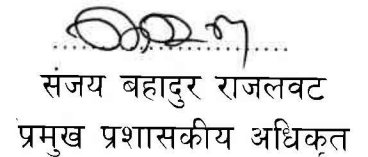 संजय बहादुर राजलवट
प्रमुख प्रशासकीय अधिकृत